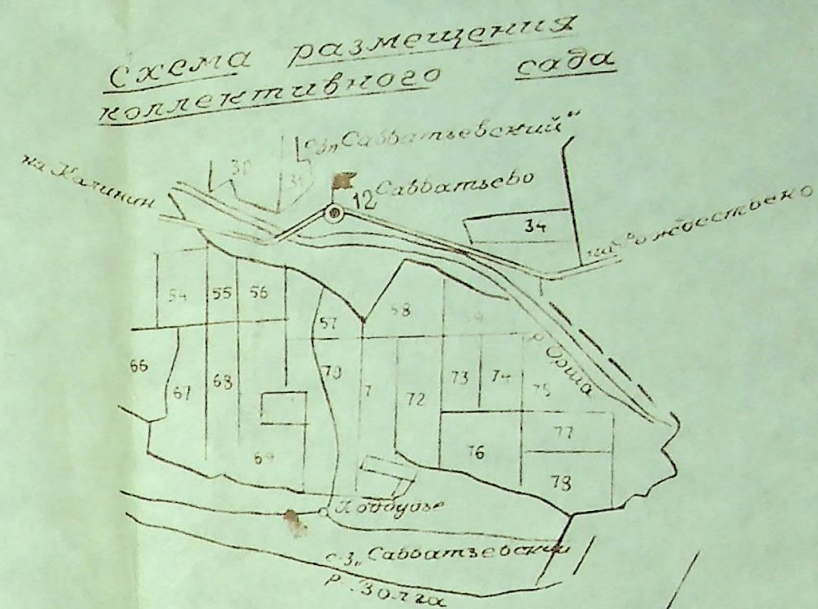 Схема размещения
коллективного сада
с-з „Савватьевский“
на Калинин
30
31
12 Савватьево
34
на Рождествено
54
55
56
57
58
59
р. Орша
66
67
68
70
7
72
73
74
75
69
76
77
78
Поддубье
с-з „Савватьевский
р. Волга